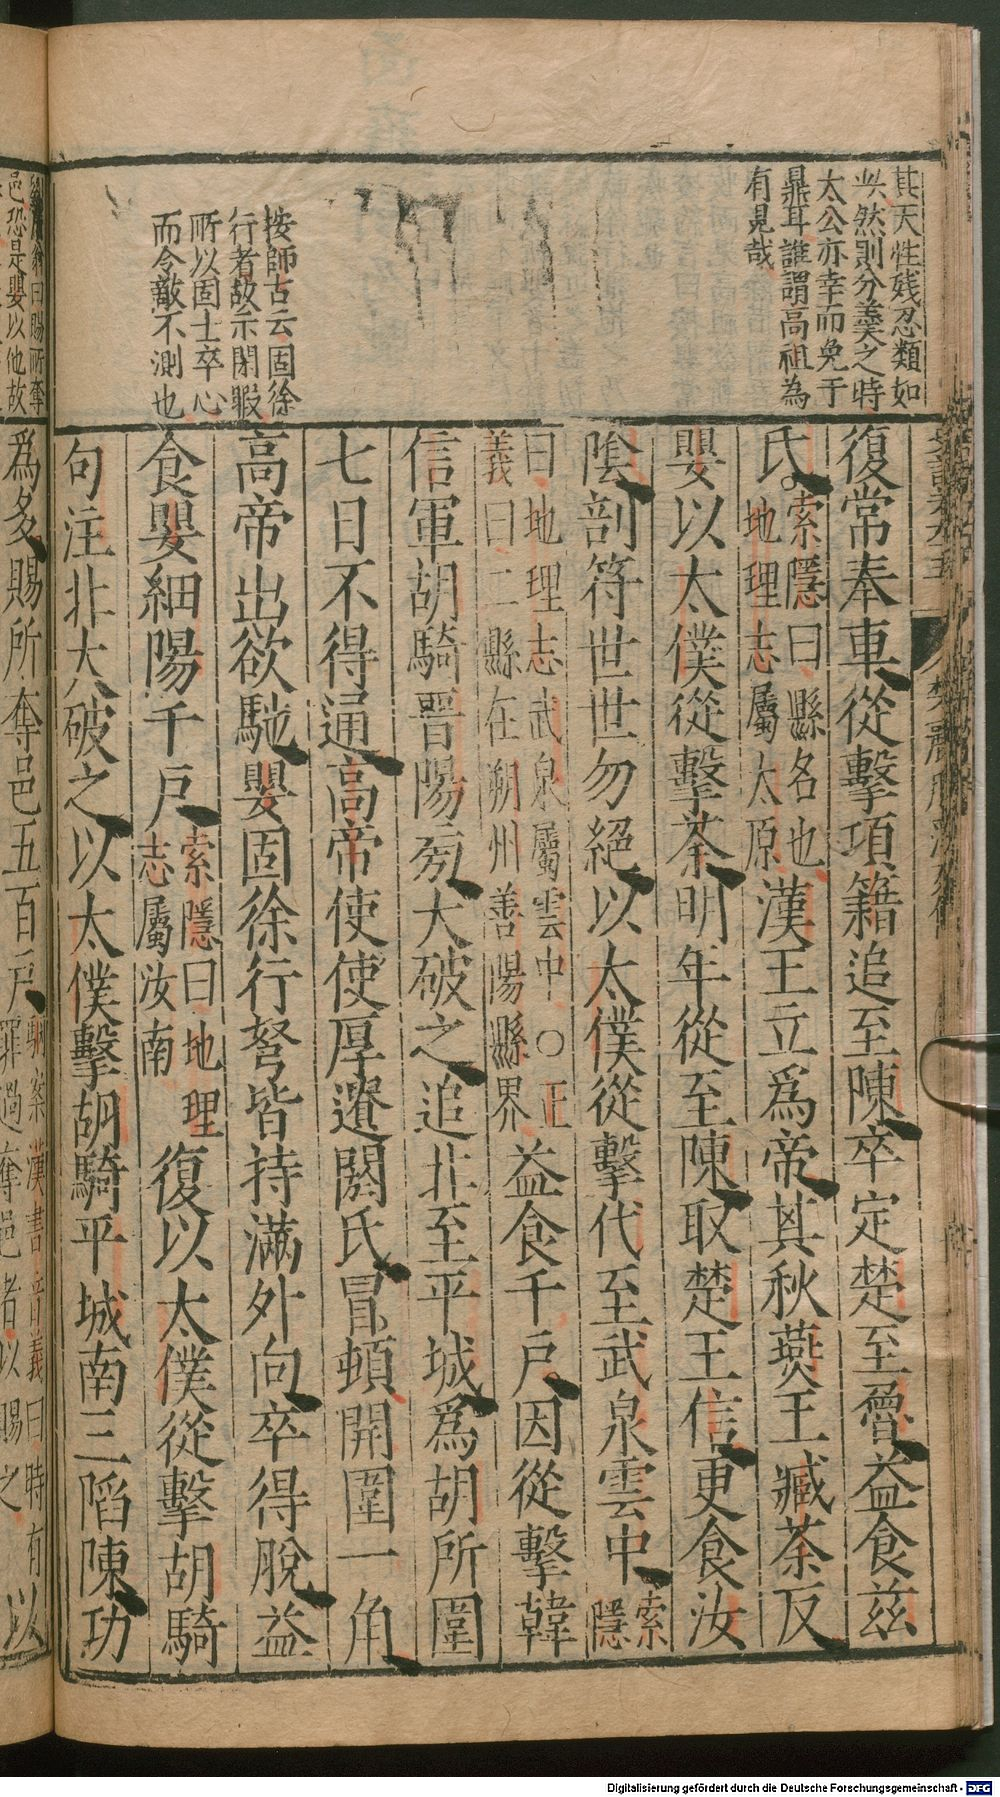 其天性殘忍類如
此然則分羹之時
太公亦幸而免于
鼎耳誰謂高祖為
有見哉
按師古云固徐
行者故示閑暇
所以固士卒心
而令敵不測也
復常奉車從擊項籍追至陳卒定楚至魯益食茲
氏索隱曰縣名也地理志屬太原漢王立爲帝其秋燕王臧荼反
嬰以太僕從擊荼明年從至陳取楚王信更食汝
陰剖符世世勿絕以太僕從擊代至武泉雲中索隱
曰地理志武泉屬雲中○正義曰二縣在朔州善陽縣界益食千戶因從擊韓
信軍胡騎晉陽旁大破之追北至平城爲胡所圍
七日不得通高帝使使厚遺閼氏冒頓開圍一角
高帝出欲馳嬰固徐行弩皆持滿外向卒得脫益
食嬰細陽千戶索隱曰地理志屬汝南復以太僕從擊胡騎
句注北大破之以太僕擊胡騎平城南三陷陳功
爲多賜所奪邑五百戶駰案漢書音義曰時有罪過奪邑者以賜之以
曰賜所奪
邑恐是嬰以他故
Digitalisierung gefördert durch die Deutsche Forschungsgemeinschaft - DFG